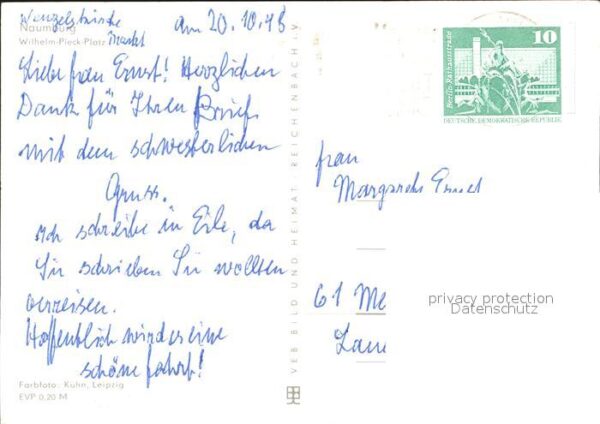 Wenzelskirche
Naumburg
Wilhelm-Pieck-Platz
Markt
am 20.10.78
Liebe Frau Ernst! Herzlichen
Dank für Ihren Brief
mit dem schwesterlichen
Gruss.
Ich schreibe in Eile, da
Sie schrieben Sie wollten
verreisen.
Hoffentlich wird es eine
schöne Fahrt!
Farbfoto: Kühn, Leipzig
EVP 0,20 M
VEB BILD UND HEIMAT REICHENBACH i. V.
Berlin-Rathausstraße
10
DEUTSCHE DEMOKRATISCHE REPUBLIK
Frau
Margarete Ernst
61 Me
privacy protection
Datenschutz